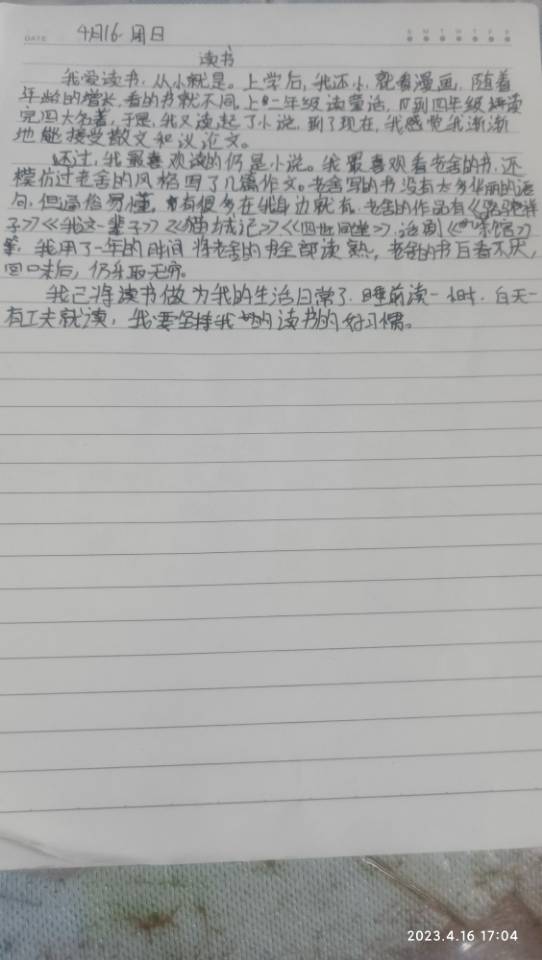 DATE
S M T W T F S
4月16 周日
读书
我爱读书,从小就是。上学后,我还小,就看漫画,随着
年龄的增长,看的书就不同,上二年级读童话,到四年级读
完四大名著,于是,我又读起了小说,到了现在,我感觉我渐渐
地能接受散文和议论文。
不过,我最喜观读的仍是小说。我最喜观看老舍的书,还
模仿过老舍的风格写了几篇作文。老舍写的书没有太多华丽的语
句,但通俗易懂,有很多在我身边就有,老舍的作品有《骆驼祥
子》《我这一辈子》《猫城记》《四世同堂》,话剧《茶馆》
等,我用了一年的时间将老舍的书全部读熟,老舍的书百看不厌,
回味后,仍乐取无穷。
我已将读书做为我的生活日常了,睡前读一小时,白天一
有工夫就读,我要坚持我的读书的好习惯。
2023.4.16 17:04